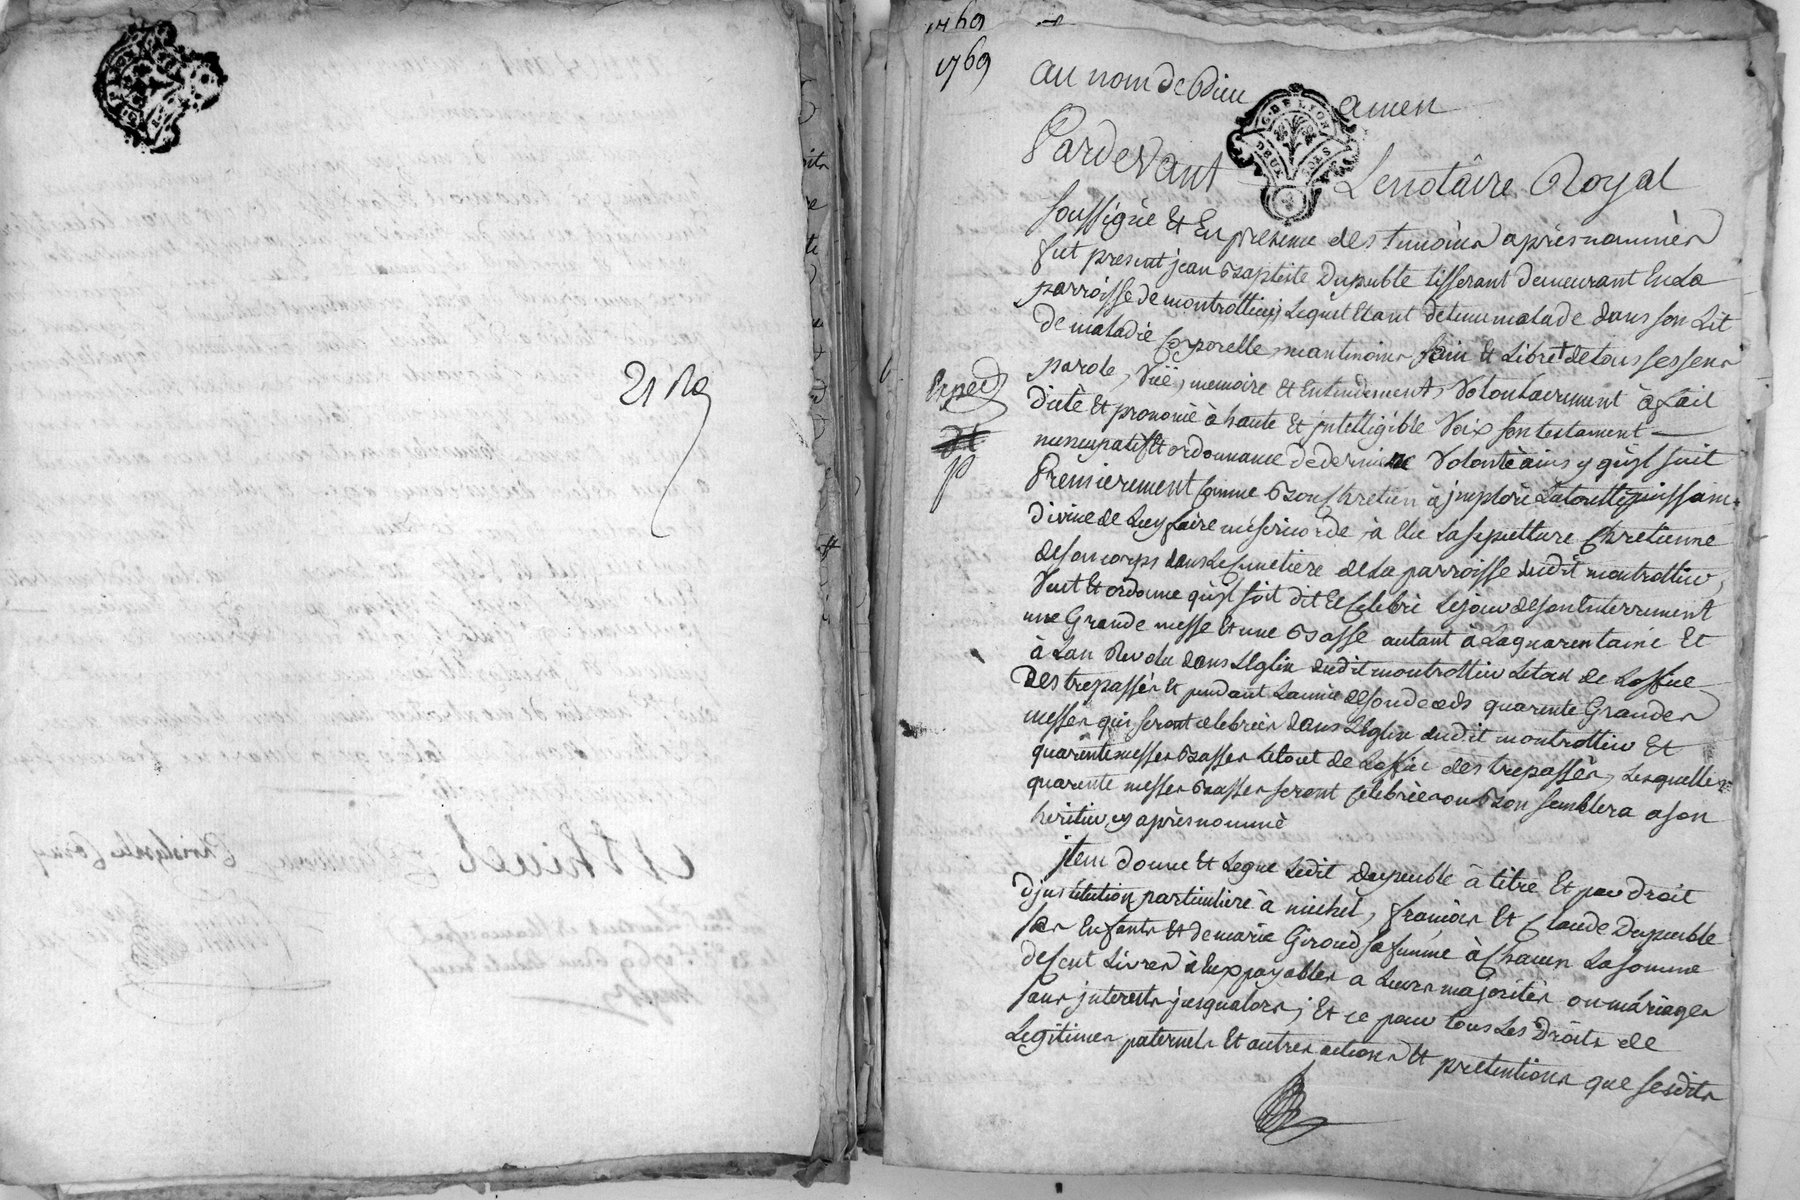 1769
1769
au nom de Dieu amen
G. DE LYON
DEUX SOLS
Pardevant Le notâire Royal
soussigné Et En presence des temoins après nommés
fut present jean Baptiste Dupeuble tisserant demeurant En La
parroisse de montrottier, Lequel Etant détenu malade dans son Lit
de maladie Corporelle, neantmoins sain Et Libre de tous ses sens
parole, Vüe, memoire et Entendement, Volontairement à fait
Expedié
dicté Et prononcé à haute Et jntelligible Voix son testament
nuncupatif Et ordonnance de derniere Volonté ainsy qu'jl suit
Premierement Comme Bon Chretien à jmploré La toutte puissance
divine de Luy faire misericorde, à Elu La sepulture Chretienne
de son corps dans Le simetiere de La parroisse dudit montrottier,
Veut Et ordonne qu'jl soit dit Et Celebré Le jour de son Enterrement
une Grande messe Et une Basse autant à La quarentaine Et
à L'an Revolu dans L'Eglise dudit montrottier Le tout de L'office
Des trepassés Et pendant L'année de son deceds quarente Grandes
messes qui seront celebrées dans L'Eglise dudit montrottier Et
quarente messes Basses Le tout de L'office des trepassés, Lesquelles
quarente messes Basses seront Celebrées ou Bon semblera a son
heritier cy après nommé
jtem donne Et Legue Ledit Dupeuble à titre Et par droit
D'jnstitution particuliere à michel, françois Et Claude Dupeuble
ses Enfants Et de marie Giroud sa femme à Chacun La somme
de Cent Livres à Eux payables a Leurs majorités ou mariages
sans jnterests jusqu'alors; Et ce pour tous Les Droits de
Legitimes paternels Et autres actions Et pretentions que sesdits